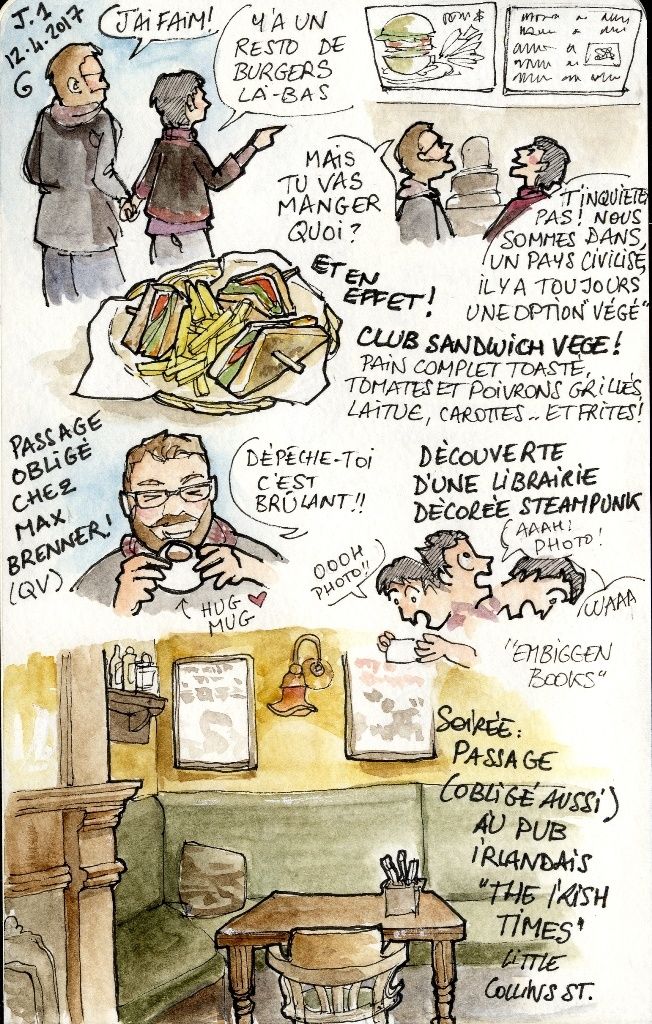 J.1
12.4.2017
G
J'AI FAIM!
Y'A UN
RESTO DE
BURGERS
LÀ-BAS
MAIS
TU VAS
MANGER
QUOI?
T'INQUIETE
PAS! NOUS
SOMMES DANS
UN PAYS CIVILISÉ,
IL Y A TOUJOURS
UNE OPTION "VÉGÉ"
ET EN
EFFET!
CLUB SANDWICH VEGE!
PAIN COMPLET TOASTÉ,
TOMATES ET POIVRONS GRILLÉS,
LAITUE, CAROTTES.. ET FRITES!
PASSAGE
OBLIGÉ
CHEZ
MAX
BRENNER!
(QV)
DÉPÊCHE-TOI
C'EST
BRÛLANT!!
HUG
MUG
DÉCOUVERTE
D'UNE LIBRAIRIE
DÉCORÉE STEAMPUNK
AAAH!
PHOTO!
OOOH
PHOTO!!
WAAA
"EMBIGGEN
BOOKS"
SOIRÉE:
PASSAGE
(OBLIGÉ AUSSI)
AU PUB
IRLANDAIS
"THE IRISH
TIMES"
LITTLE
COLLINS ST.